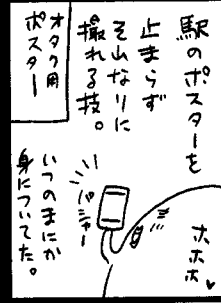 駅のポスターを
止まらず
それなりに
撮れる技。
オタク用
ポスター
パシャー
いつのまにか
身についてた。
ホホホ